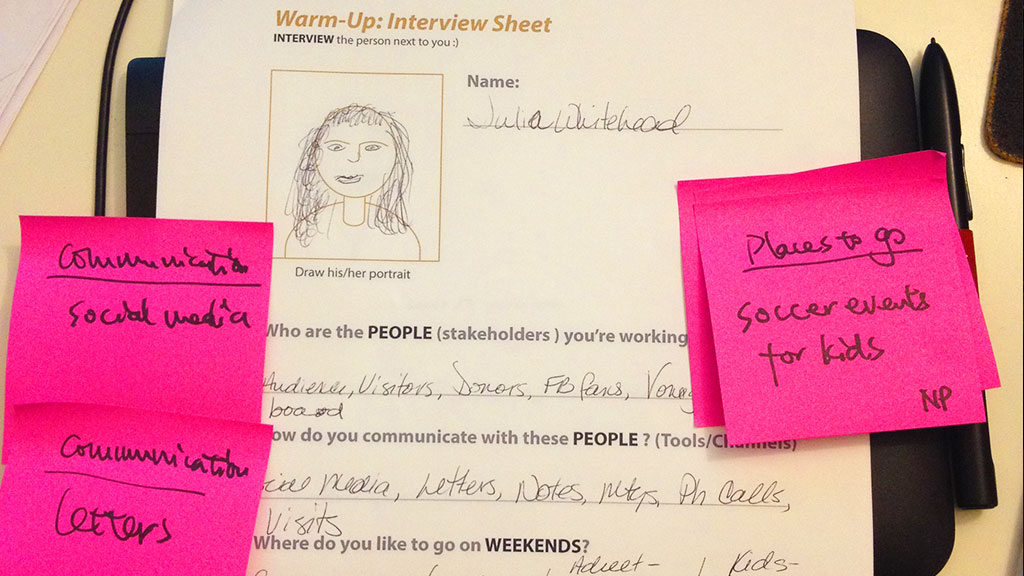 Warm-Up: Interview Sheet
INTERVIEW the person next to you :)
Name:
Julia Whitehead
Draw his/her portrait
communication
social media
communication
letters
Places to go
soccer events
for kids
NP
Who are the PEOPLE (stakeholders ) you're working
Audience, Visitors, Donors, FB fans,
board
ow do you communicate with these PEOPLE ? (Tools/Channels)
cial media, Letters, Notes, mtgs, Ph Calls,
Visits
Where do you like to go on WEEKENDS?
Kids-